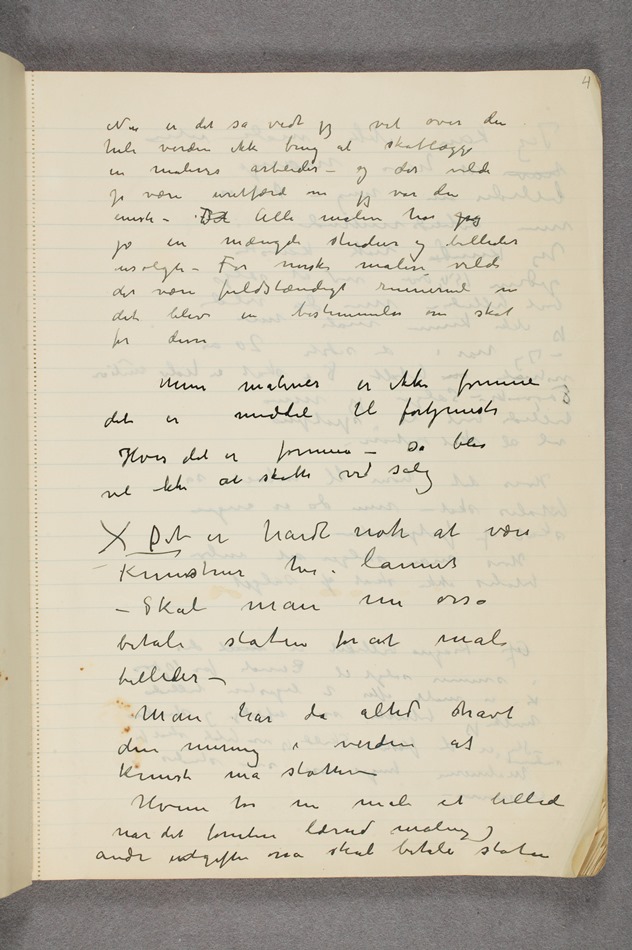 4
Nu er det så vidt jeg vet over den
hele verden ikke brug at skatlægge
en malers arbeider – og der vilde
jo være uretfærd om jeg var den
eneste – Det Alle malere har jeg
jo en mængde studier og billeder
usolgte – For norske malere vilde
det være fuldstændigt ruinerende om
det blev en bestemmelse om skat
for disse
Mine malerier er ikke formue
det er middel til fortjeneste
Hvis det er formue – så blev
vel ikke at skatte ved salg
X Det er hardt nok at være
Kunstner her i landet
– Skal man nu også
betale staten for at male
billeder –
Man har da altid havt
den mening i verden at
Kunst må støttes
Hvem tør nu male et billede
når det foruten lærred maling
andre udgifter også skal betale staten